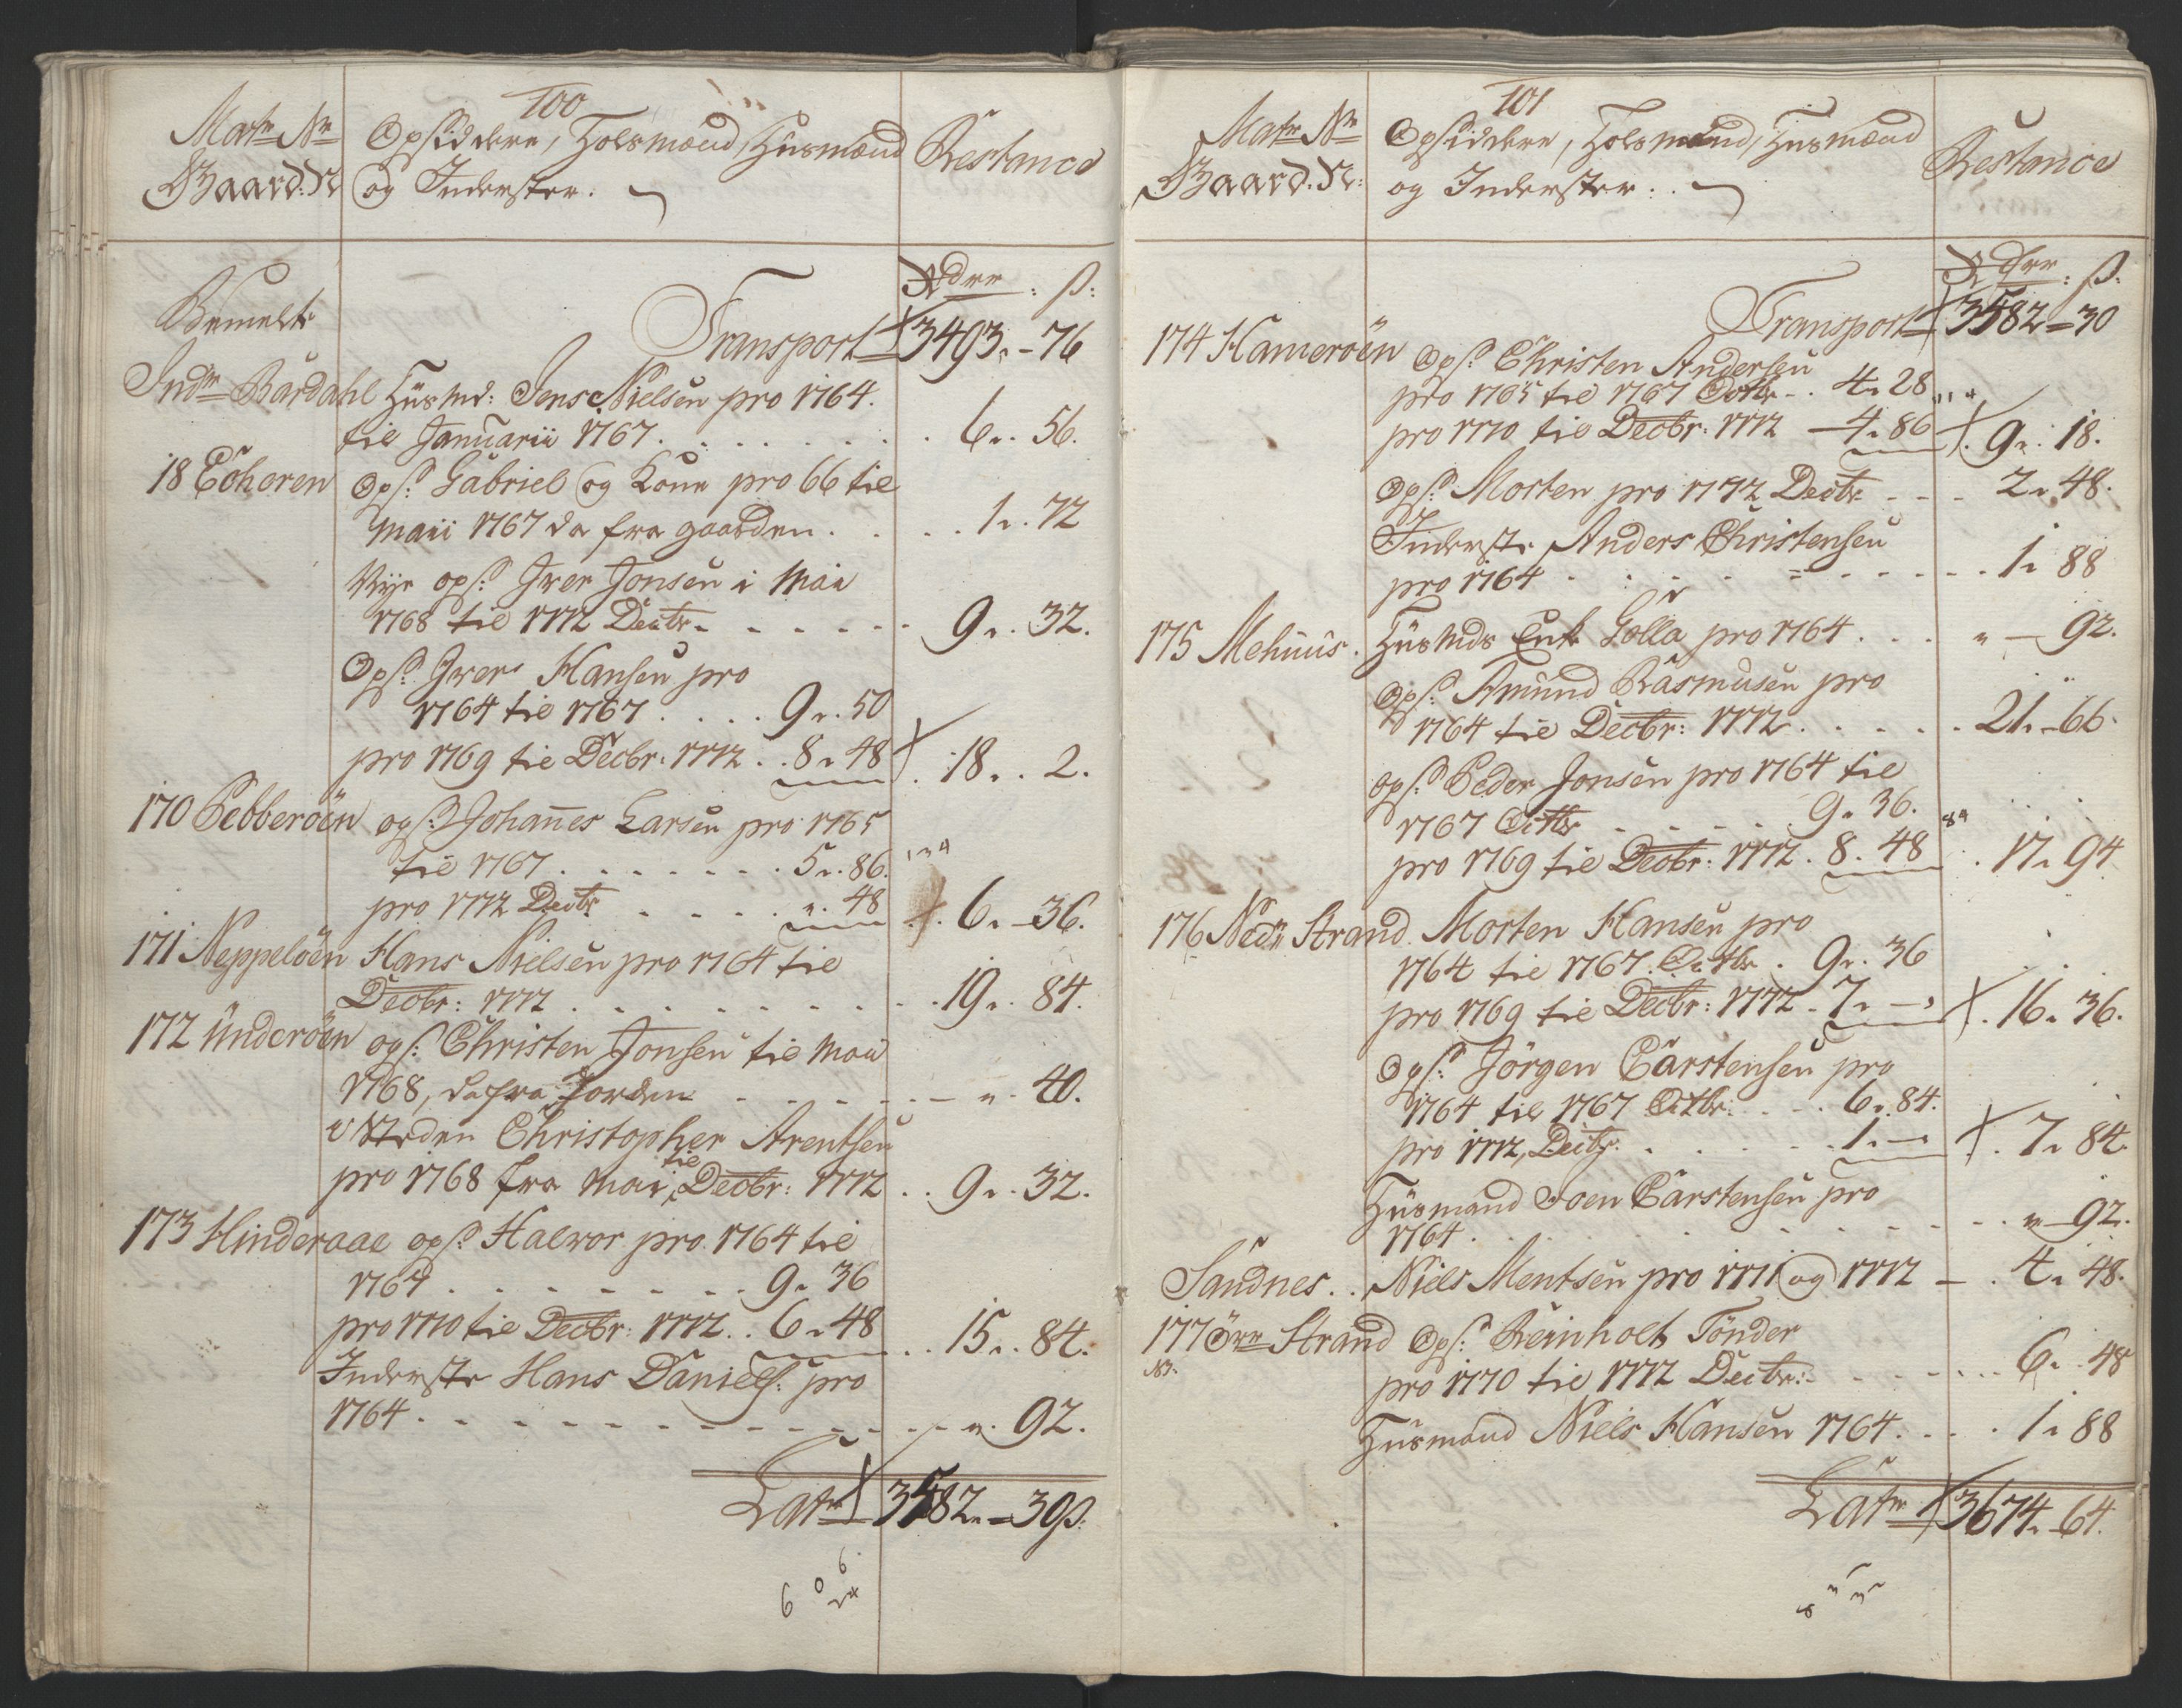 100
Matr: Nr Opsiddere, Holsmænd, Husmænd Restance
Gaard: N: og Inderster.
Rdrr : ß:
Bemelte Transport 3493 - 76
Indr Bardahl Husmd: Jens Nielsen pro 1764.
til Januarii 1767 . . . 6 " 56.
18 Echeren Ops: Gabriel og Kone pro 66 til
Maii 1767 da fra gaarden . . . 1 " 72
Nye ops: Iver Jonsen i Mai
1768 til 1772 Decbr - - - 9 " 32.
Ops: Iver Hansen pro
1764 til 1767 . . . . 9 " 50
pro 1769 til Decbr: 1772 . . 8 " 48 . 18 " 2.
170 Pebberöen ops: Johannes Larsen pro 1765
til 1767 . . . . . . 5 " 86.
pro 1772 Decbr . . . . " 48 . 6 " 36.
171 Neppelöen Hans Nielsen pro 1764 til
Decbr: 1772 . . . . . 19 " 84.
172 Underöen ops: Christen Jonsen til Maii
1768, da fra Jorden - - - - " 40.
Christopher Arentsen
pro 1768 fra Mai til Decbr: 1772 . . 9 " 32.
173 Hinderaae ops: Halvor pro 1764 til
1767 . . . . . . 9 " 36
pro 1770 til Decbr: 1772 . . 6 " 48 . . 15 " 84.
Inderste Hans Daniels: pro
1764 . - - - - - - " 92.
Latr 3582 " - 30ß:
6 0 6
101
Matr: Nr Opsiddere, Holsmænd, Husmænd Restance
Gaard. N: og Inderster.
Rdrr : ß:
Transport 3582 - 30
174 Hameröen Ops: Christen Andersen
pro 1765 til 1767 Octbr - . 4 " 28
pro 1770 til Decbr: 1772 - 4 " 86 . 9 " 18.
Ops: Morten pro 1772 Decbr - - - 2 " 48.
Inderste Anders Christensen
pro 1764 - - - - - - 1 " 88
175 Mehuus. Husmds Enke Golla pro 1764 . . . " - 92.
Ops: Amund Rasmusen pro
1764 til Decbr: 1772 . . . . 21 " - 66.
ops: Peder Jonsen pro 1764 til
1767 Octbr - - - - 9 " 36.
pro 1769 til Decbr: 1772 . 8 . 48 . 17 " 94
176 Nedr Strand. Morten Hansen pro
1764 til 1767 Octbr . 9 " 36
pro 1769 til Decbr: 1772 - 7 " - . 16 " 36.
Ops: Jörgen Carstensen pro
1764 til 1767 Octbr. - - . 6 " 84.
pro 1772, Decbr. - - - . 1 " - . 7 " 84.
Husmand Joen Carstensen pro
1764 . . . . . . " - 92.
Sandnes . . Niels Mentsen pro 1771 og 1772 - . 4 " 48.
177 Öwr Strand Ops: Reinholt Tönder
pro 1770 til 1772 Decbr: - - - . . . 6 " 48
Husmand Niels Hansen 1764. . . . 1 " 88
Latr 3674 " - 64.